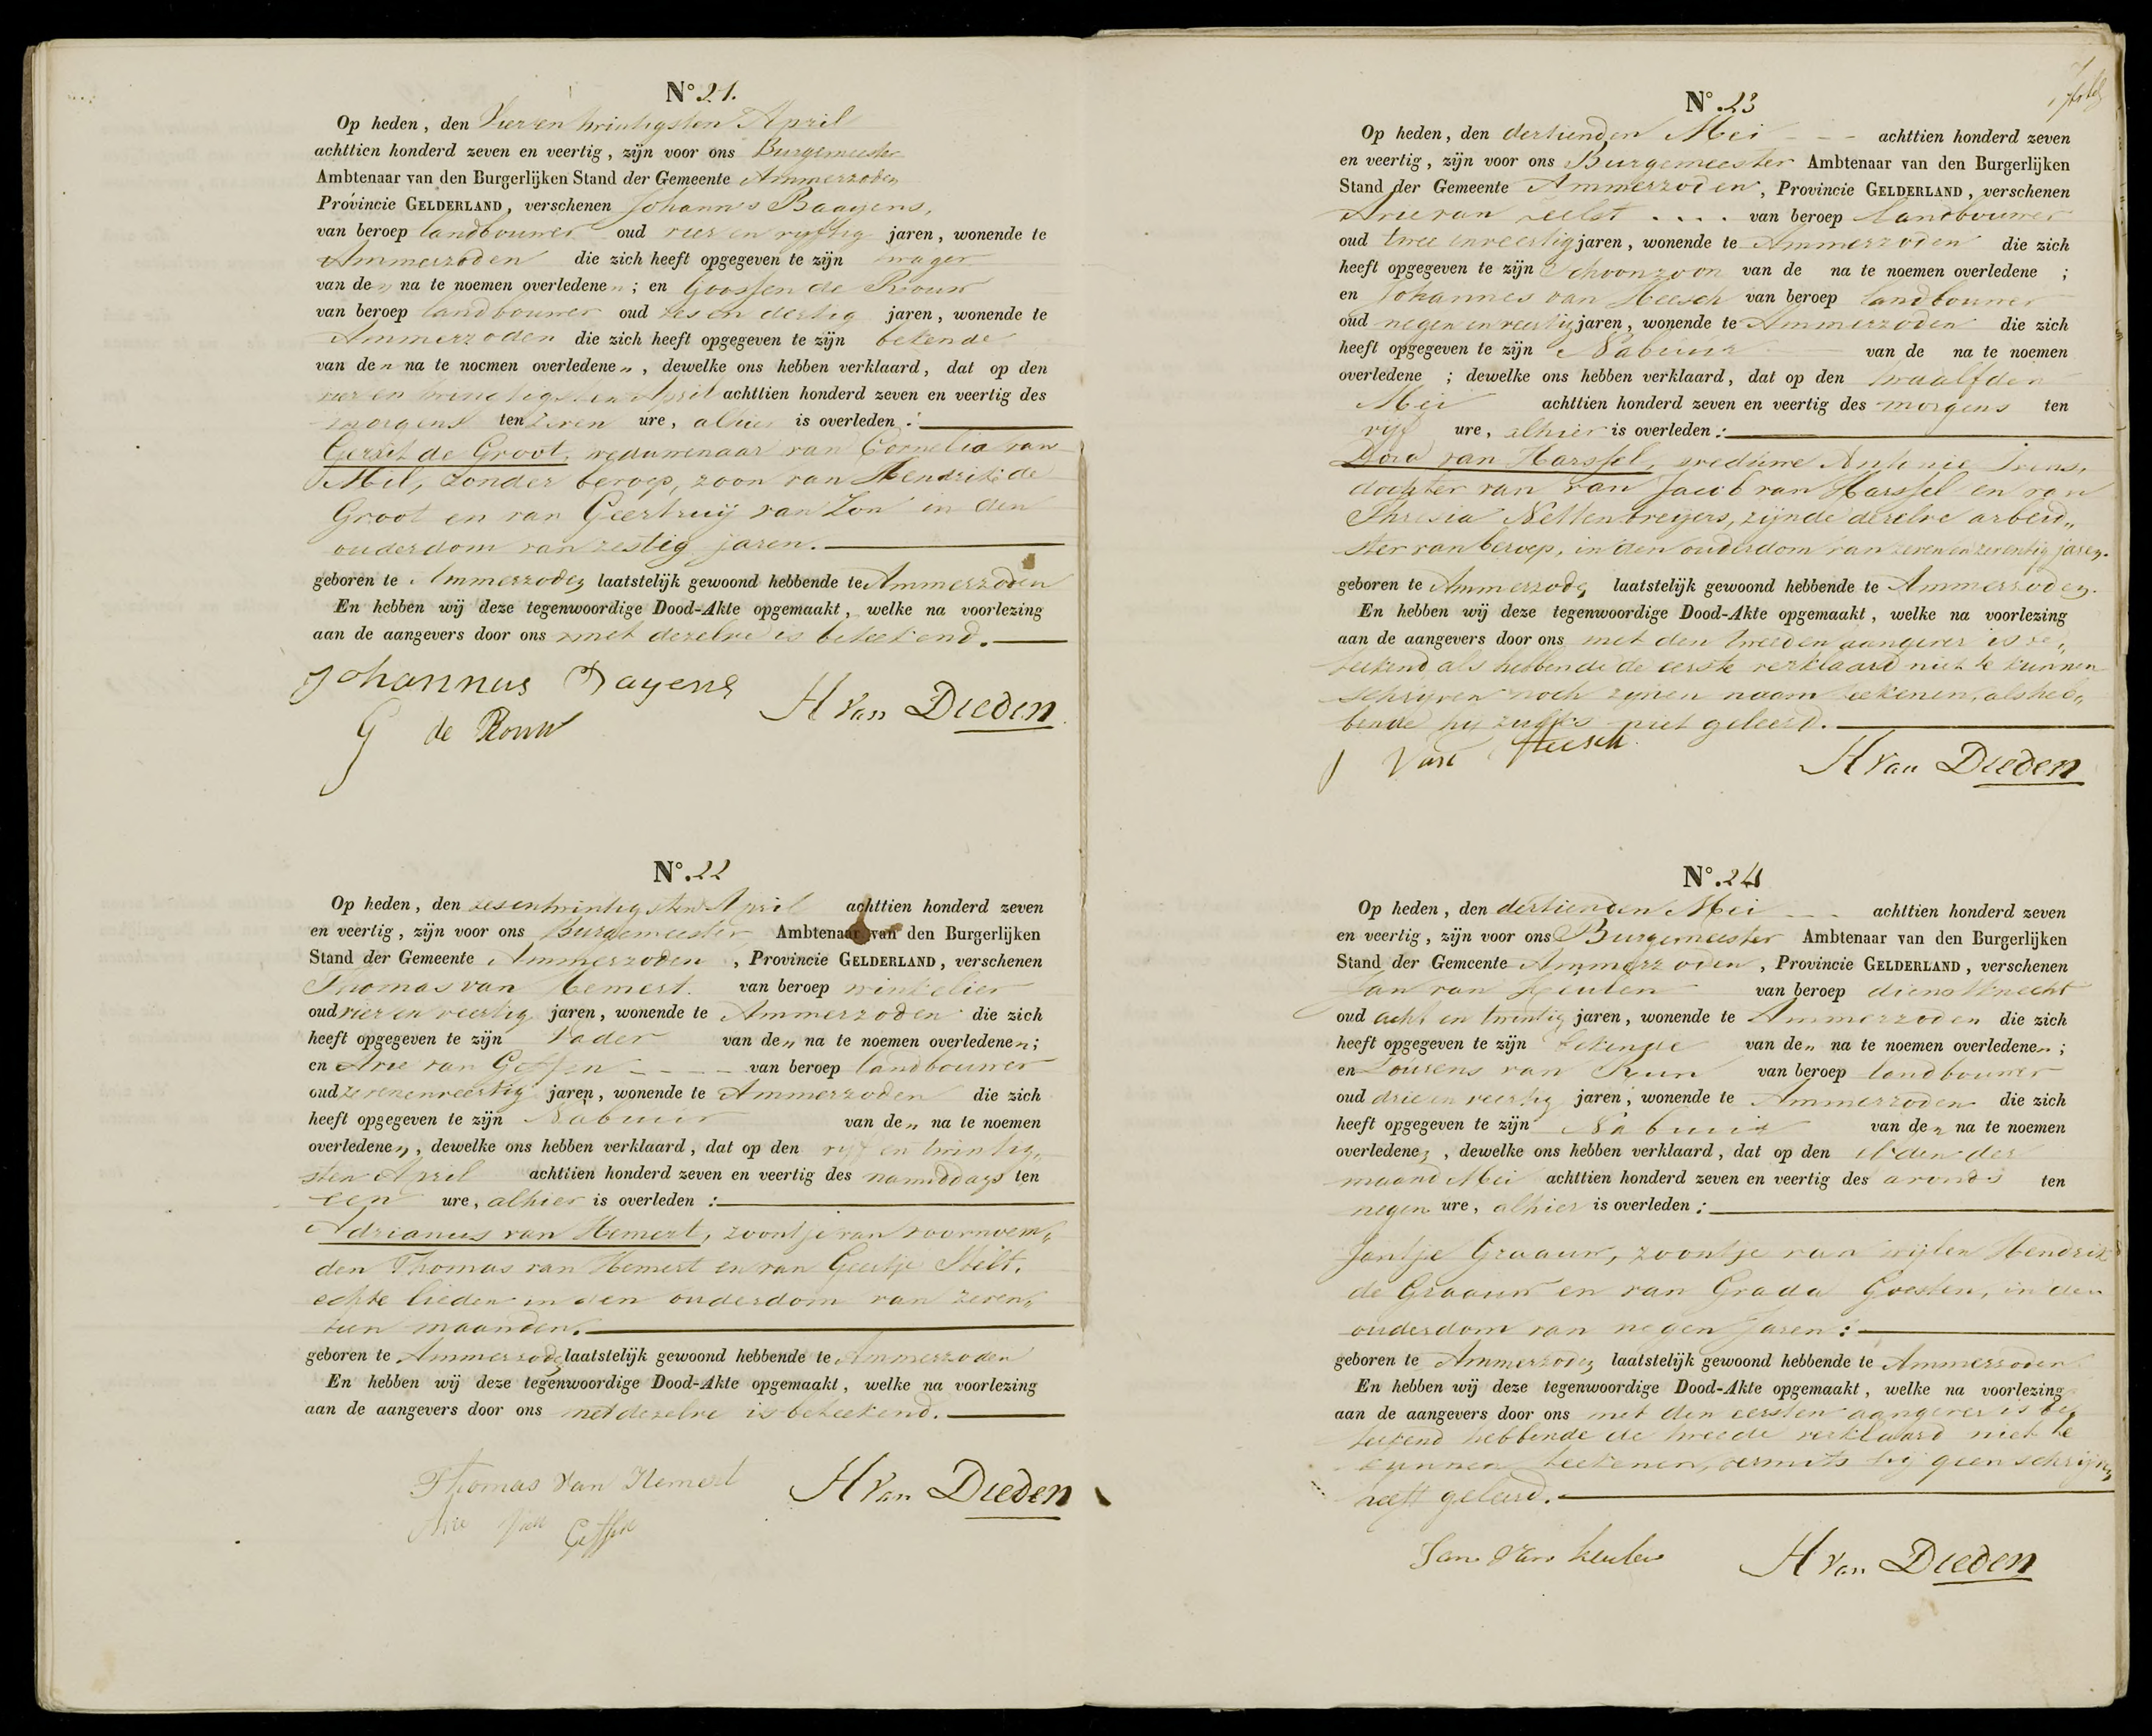 N° 21.
Op heden, den Vier en twintigsten April
achttien honderd zeven en veertig, zijn voor ons Burgemeester
Ambtenaar van den Burgerlijken Stand der Gemeente Ammerzoden
Provincie GELDERLAND, verschenen Johannes Baayens,
van beroep landbouwer oud vier en vyftig jaren, wonende te
Ammerzoden die zich heeft opgegeven te zijn zwager
van den na te noemen overledenen; en Goossen de Rouw
van beroep landbouwer oud zes en dertig jaren, wonende te
Ammerzoden die zich heeft opgegeven te zijn bekende
van den na te noemen overledenen, dewelke ons hebben verklaard, dat op den
vier en twintigsten April achttien honderd zeven en veertig des
morgens ten zeven ure, alhier is overleden:
Gerrit de Groot, weduwenaar van Cornelia van
Mil, zonder beroep, zoon van Hendrik de
Groot en van Geertruij van Zon in den
ouderdom van zestig jaren.
geboren te Ammerzoden laatstelijk gewoond hebbende te Ammerzoden
En hebben wij deze tegenwoordige Dood-Akte opgemaakt, welke na voorlezing
aan de aangevers door ons met dezelve is beteekend.
Johannus Bayens
H Van Dieden
G de Rouw
N°. 22
Op heden, den zesentwintigsten April achttien honderd zeven
en veertig, zijn voor ons Burgemeester Ambtenaar van den Burgerlijken
Stand der Gemeente Ammerzoden, Provincie GELDERLAND, verschenen
Thomas van Hemert. van beroep winkelier
oud vier en veertig jaren, wonende te Ammerzoden die zich
heeft opgegeven te zijn Vader van den na te noemen overledenen;
en Arie van Geffen van beroep landbouwer
oud zevenenveertig jaren, wonende te Ammerzoden die zich
heeft opgegeven te zijn Nabuur van den na te noemen
overledenen, dewelke ons hebben verklaard, dat op den vyf en twintig„
sten April achttien honderd zeven en veertig des namiddags ten
een ure, alhier is overleden:
Adrianus van Hemert, zoontje van voornoem„
den Thomas van Hemert en van Geertje Stilt,
echte lieden in den ouderdom van zeven„
tien maanden.
geboren te Ammerzoden laatstelijk gewoond hebbende te Ammerzoden
En hebben wij deze tegenwoordige Dood-Akte opgemaakt, welke na voorlezing
aan de aangevers door ons met dezelve is beteekend.
Thomas Van Hemert
H Van Dieden
Arie Van Geffen
N° 23
Op heden, den dertienden Mei achttien honderd zeven
en veertig, zijn voor ons Burgemeester Ambtenaar van den Burgerlijken
Stand der Gemeente Ammerzoden, Provincie GELDERLAND, verschenen
Arie van Zeelst . . . . van beroep landbouwer
oud twee en veertig jaren, wonende te Ammerzoden die zich
heeft opgegeven te zijn Schoonzoon van de na te noemen overledene ;
en Johannes van Heesch van beroep landbouwer
oud negen en veertig jaren, wonende te Ammerzoden die zich
heeft opgegeven te zijn Nabuur van de na te noemen
overledene ; dewelke ons hebben verklaard, dat op den twaalfden
Mei achttien honderd zeven en veertig des morgens ten
vijf ure, alhier is overleden:
Dora van Harssel, weduwe Antonie
dochter van van Jacob van Harssel en van
Thresia Nettenbreyers, zijnde dezelve arbeid„
ster van beroep, in den ouderdom van zeven en zeventig jaren.
geboren te Ammerzoden laatstelijk gewoond hebbende te Ammerzoden.
En hebben wij deze tegenwoordige Dood-Akte opgemaakt, welke na voorlezing
aan de aangevers door ons met den tweeden aangever is be„
teekend als hebbende de eerste verklaard niet te kunnen
schryven noch zynen naam teekenen, als heb„
bende hy zulks niet geleerd.
J Van Heesch
H Van Dieden
N°. 24
Op heden, den dertienden Mei achttien honderd zeven
en veertig, zijn voor ons Burgemeester Ambtenaar van den Burgerlijken
Stand der Gemeente Ammerzoden, Provincie GELDERLAND, verschenen
Jan van Keulen van beroep dienstknecht
oud acht en twintig jaren, wonende te Ammerzoden die zich
heeft opgegeven te zijn bekende van den na te noemen overledenen;
en Lourens van van beroep landbouwer
oud drie en veertig jaren, wonende te Ammerzoden die zich
heeft opgegeven te zijn Nabuur van den na te noemen
overledenen, dewelke ons hebben verklaard, dat op den der
maand Mei achttien honderd zeven en veertig des avonds ten
negen ure, alhier is overleden:
Jantje Graauw, zoontje van wijlen Hendrik
de Graauw en van Grada Goesten, in den
ouderdom van negen Jaren:
geboren te Ammerzoden laatstelijk gewoond hebbende te Ammerzoden
En hebben wij deze tegenwoordige Dood-Akte opgemaakt, welke na voorlezing
aan de aangevers door ons met den eersten aangever is be„
teekend hebbende de tweede verklaard niet te
kunnen teekenen, vermits hij geen schrijven
heeft geleerd.
Jan Van keulen
H Van Dieden